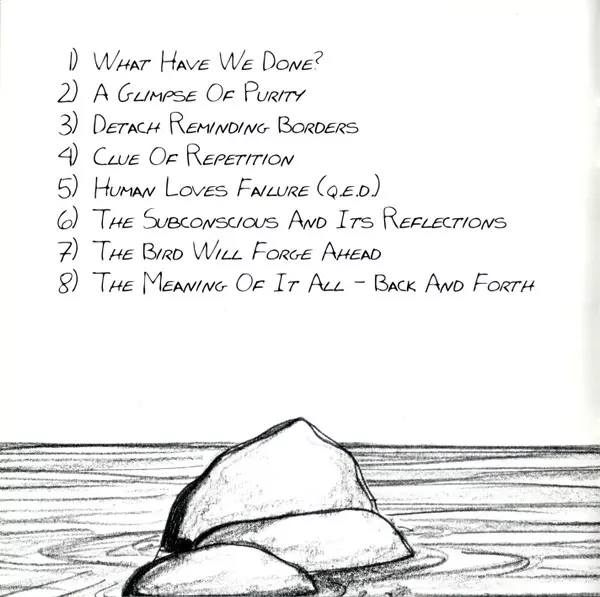 1) What Have We Done?
2) A Glimpse Of Purity
3) Detach Reminding Borders
4) Clue Of Repetition
5) Human Loves Failure (Q.E.D.)
6) The Subconscious And Its Reflections
7) The Bird Will Forge Ahead
8) The Meaning Of It All - Back And Forth